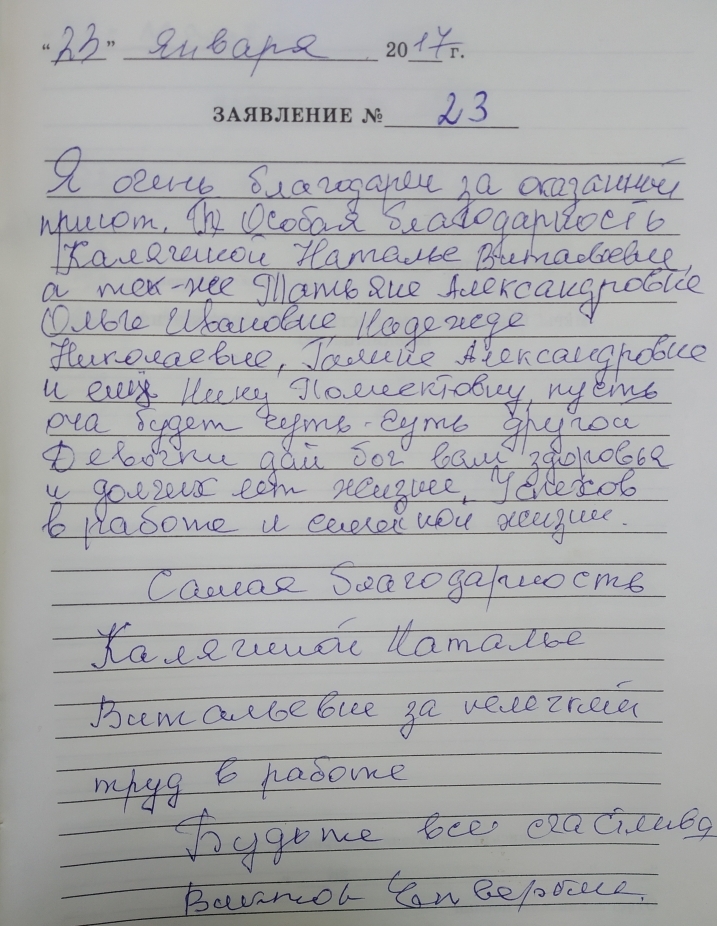 "23" января 2017 г.
ЗАЯВЛЕНИЕ № 23
Я очень благодарен за оказанный
приют. Особая благодарность
Калягиной Наталье Витальевне,
а так-же Татьяне Александровне
Ольге Ивановне Надежде
Николаевне, Галине Александровне
и ещё Нину пусть
она будет чуть-чуть другой
Девочки дай бог вам здоровья
и долгих лет жизни, Успехов
в работе и семейной жизни.
Самая благодарность
Калягиной Наталье
Витальевне за нелегкий
труд в работе
Будьте все счастливо